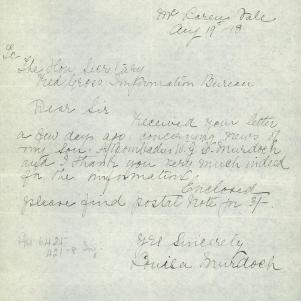 Mt Carey Vale
Aug 19th 18
To
The Hon. Secretary
Red Cross Information Bureau
Dear Sir
Received your letter
a few days ago, concerning news of
my son, W. G. Murdoch
and I thank you very much indeed
for the information.
Enclosed
please find postal note for 3/-
Yrs Sincerely
Louisa Murdoch